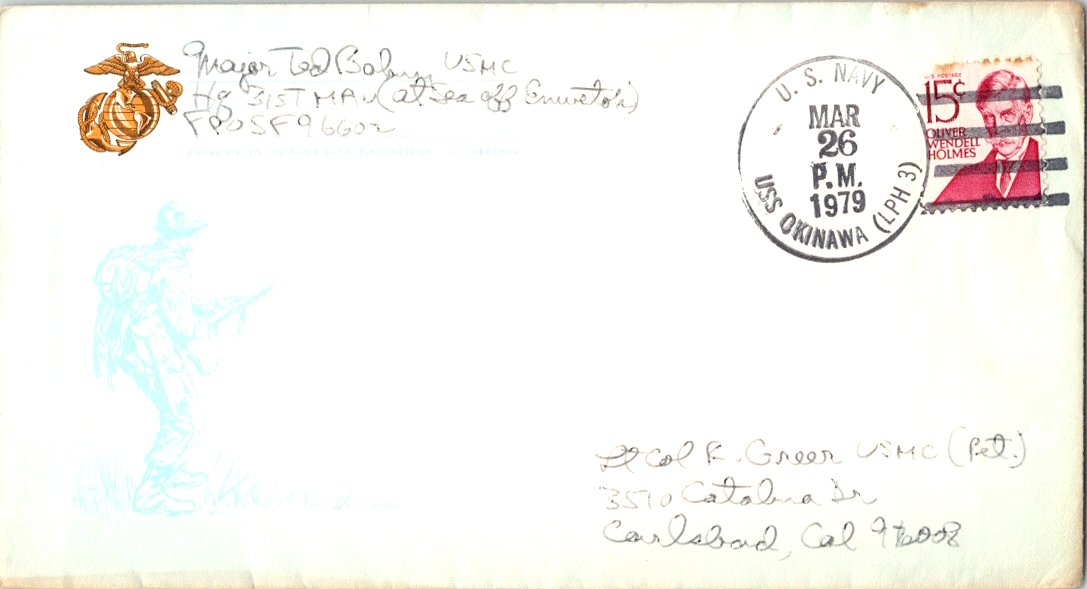 Major Ted USMC
Hq 31ST MAU (at Sea off
FPO SF 96602
U. S. NAVY
MAR
26
P.M.
1979
USS OKINAWA (LPH 3)
U.S. POSTAGE
15¢
OLIVER
WENDELL
HOLMES
Lt Col F. Greer USMC (Ret.)
3510 Catalina Dr
Carlsbad, Cal